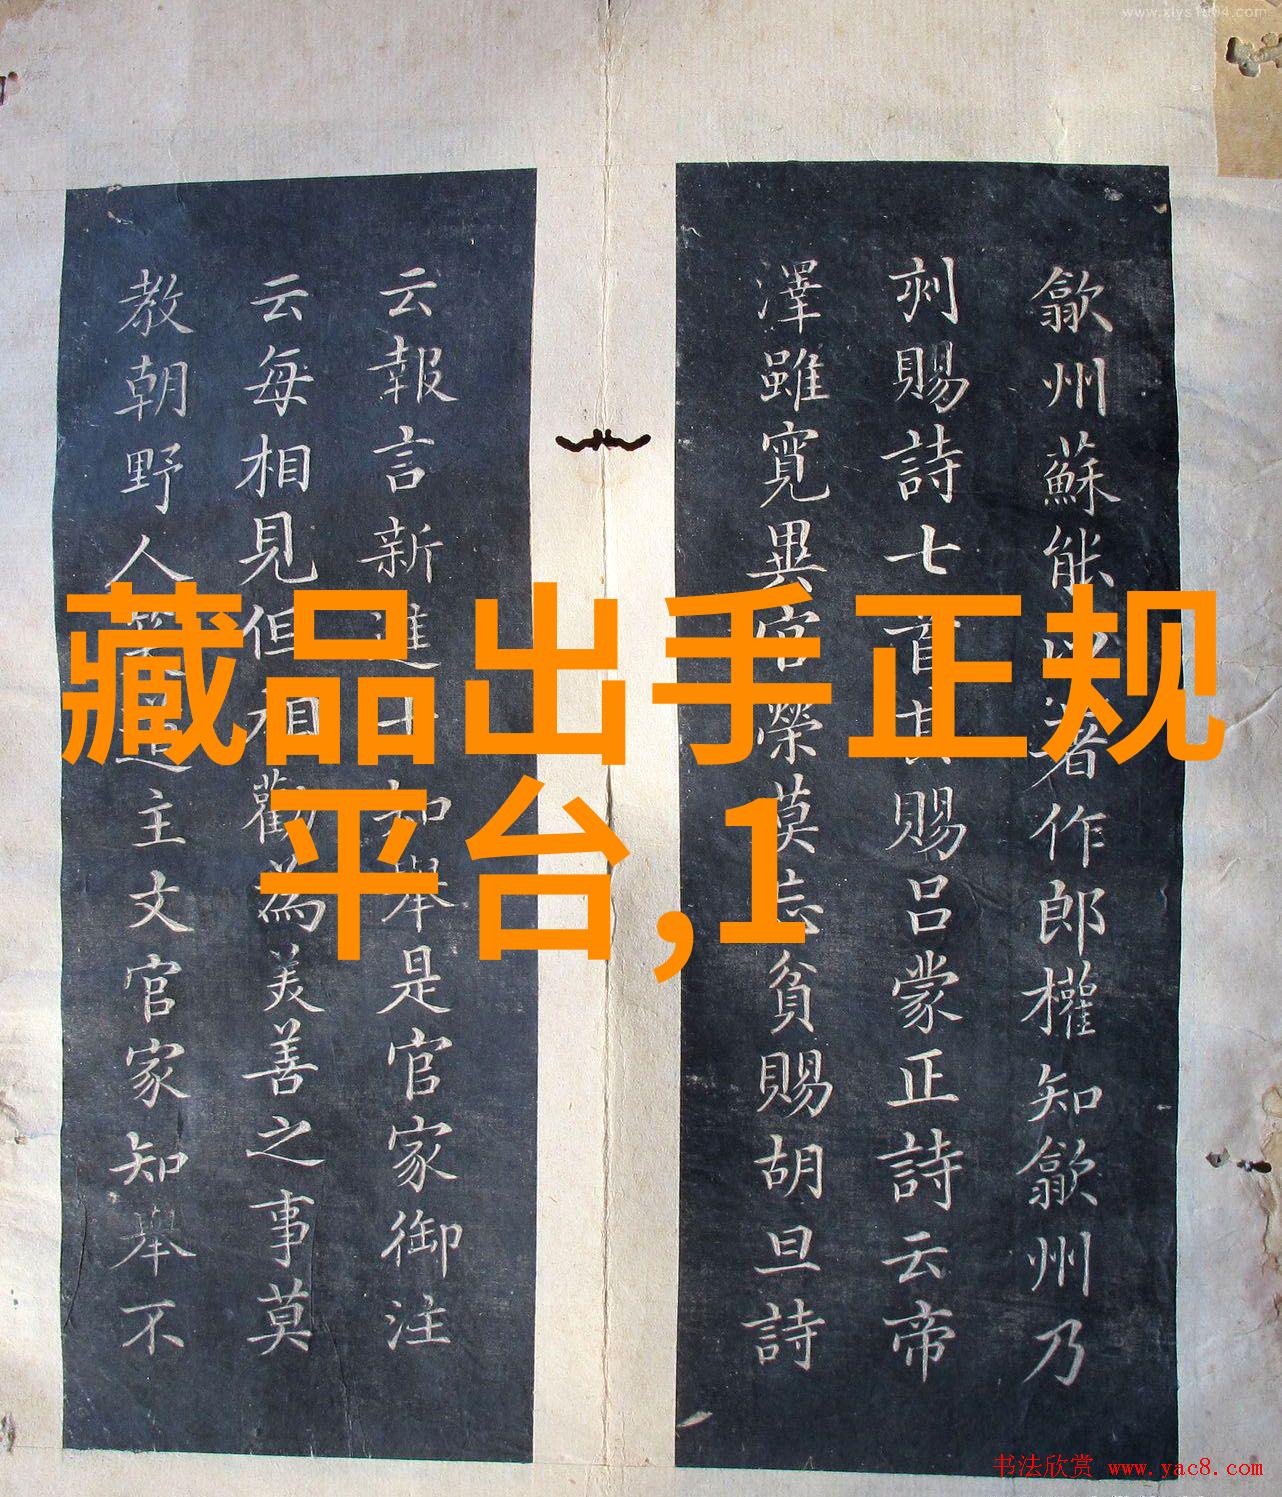 www.xlys1904.com
歙州蘇能以著作郎權知歙州乃
刺賜詩七首其賜呂蒙正詩云帝
澤雖寬異官榮莫忘貧賜胡旦詩
云報言新進士知舉是官家御注
云每相見但相勸為美善之事莫
教朝野人笑道主文官家知舉不
藏品出手正规
平台,1
书法欣赏 www.yac8.com